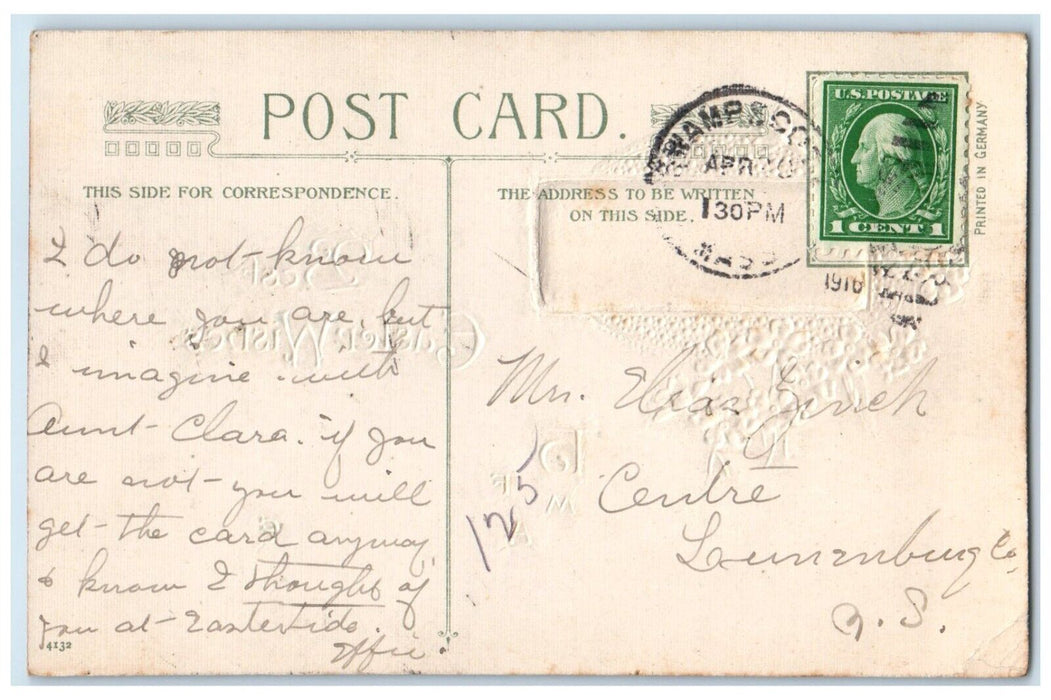 POST CARD.
THIS SIDE FOR CORRESPONDENCE.
I do not know
where you are, but
I imagine with
Aunt Clara. if you
are not you will
get the card anyway,
& know I thought of
you at Eastertide.
Effie.
4132
THE ADDRESS TO BE WRITTEN
ON THIS SIDE.
APR 20
130PM
MASS
1916
U.S. POSTAGE
1 CENT 1
PRINTED IN GERMANY
Best
Easter Wishes
Mrs. Elias
Centre
Lunenburg Co
N. S.
125